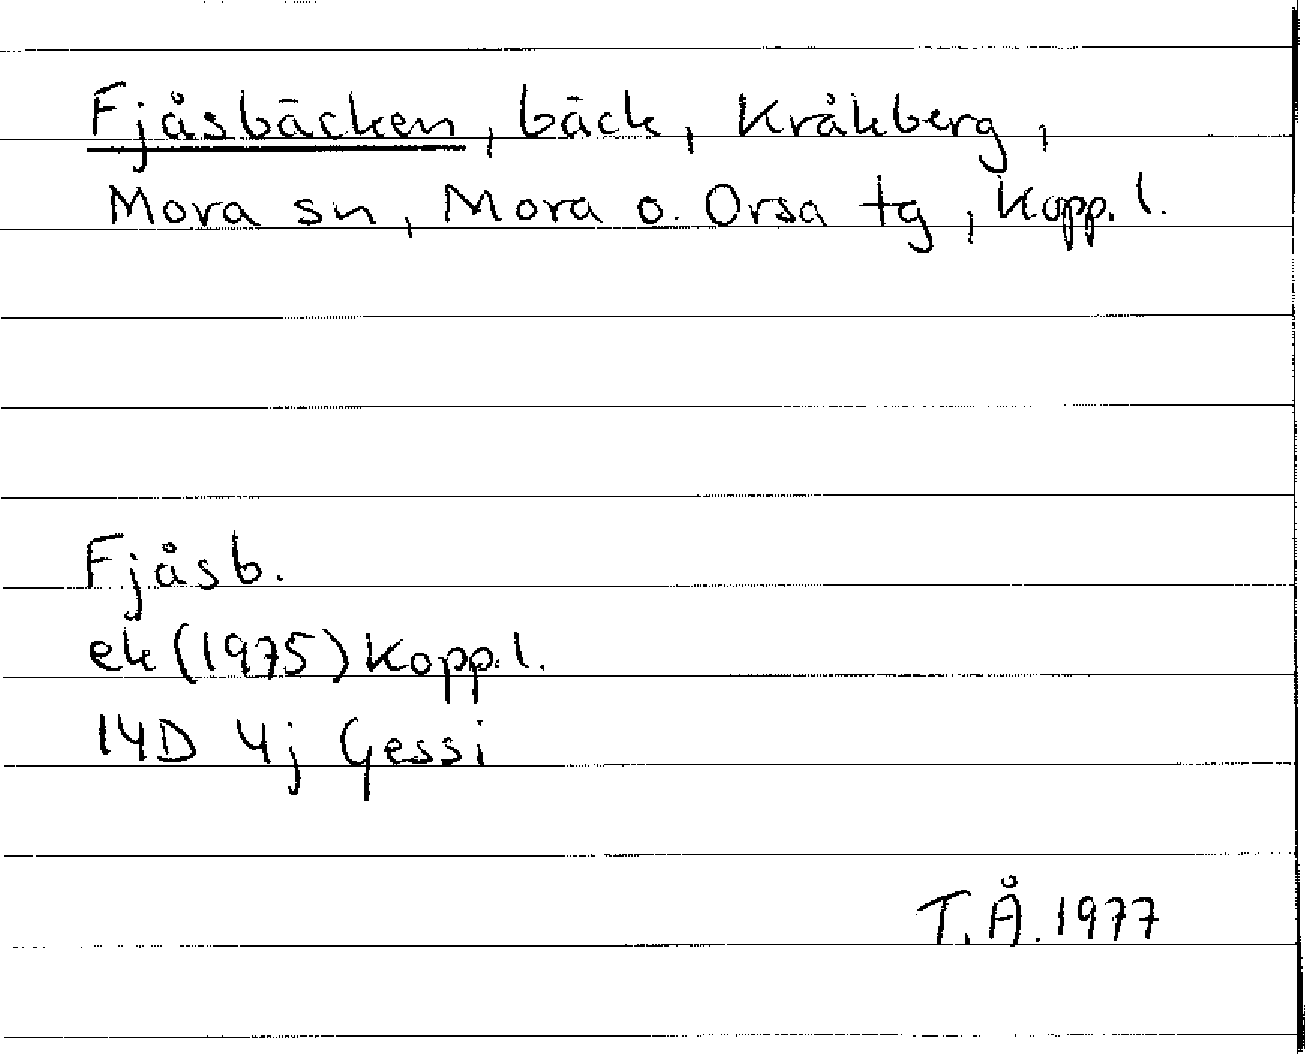 Fjåsbäcken, bäck, Kråkberg,
Mora sn, Mora o. Orsa tg, Kopp. l.
Fjåsb.
ek (1975) Kopp. l.
14D 4j Gessi
T.Å. 1977